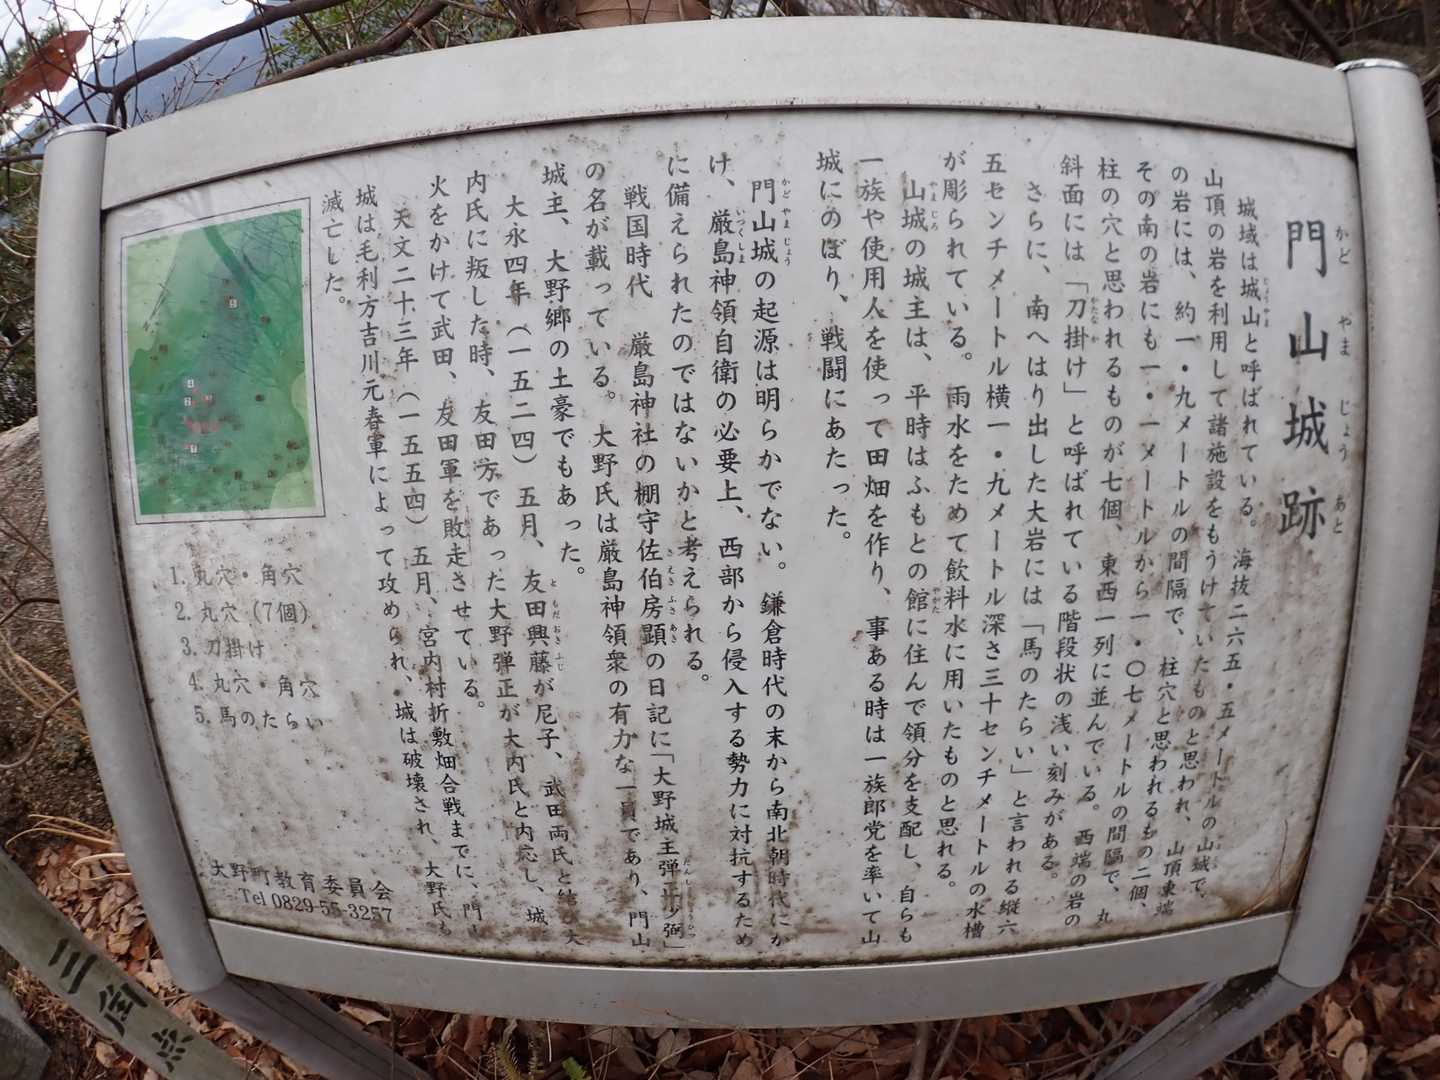 門山城跡
かど やま じょう あと
城域は城山と呼ばれている。海抜二六五・五メートルの山城で、
じょうやま
山頂の岩を利用して諸施設をもうけていたものと思われ、山頂東端
の岩には、約一・九メートルの間隔で、柱穴と思われるもの二個、
その南の岩にも一・一メートルから一・〇七メートルの間隔で、丸
柱の穴と思われるものが七個、東西一列に並んでいる。西端の岩の
斜面には「刀掛け」と呼ばれている階段状の浅い刻みがある。
かたなか
さらに、南へはり出した大岩には「馬のたらい」と言われる縦六
五センチメートル横一・九メートル深さ三十センチメートルの水槽
が彫られている。雨水をためて飲料水に用いたものと思れる。
山城の城主は、平時はふもとの館に住んで領分を支配し、自らも
やまじろ
やかた
一族や使用人を使って田畑を作り、事ある時は一族郎党を率いて山
城にのぼり、戦闘にあたった。
門山城の起源は明らかでない。鎌倉時代の末から南北朝時代にか
かどやまじょう
け、厳島神領自衛の必要上、西部から侵入する勢力に対抗するため
いつくしま
に備えられたのではないかと考えられる。
戦国時代 厳島神社の棚守佐伯房顕の日記に「大野城主弾正少弼」
さえきふさあき
の名が載っている。大野氏は厳島神領衆の有力な一員であり、門山
城主、大野郷の土豪でもあった。
大永四年（一五二四）五月、友田興藤が尼子、武田両氏と結び大
ともだおきふじ
内氏に叛した時、友田方であった大野弾正が大内氏と内応し、城
火をかけて武田、友田軍を敗走させている。
天文二十三年（一五五四）五月、宮内村折敷畑合戦までに、門山
城は毛利方吉川元春軍によって攻められ、城は破壊され、大野氏も
滅亡した。
1. 丸穴・角穴
2. 丸穴（7個）
3. 刀掛け
4. 丸穴・角穴
5. 馬のたらい
大野町教育委員会
Tel 0829-55-3257